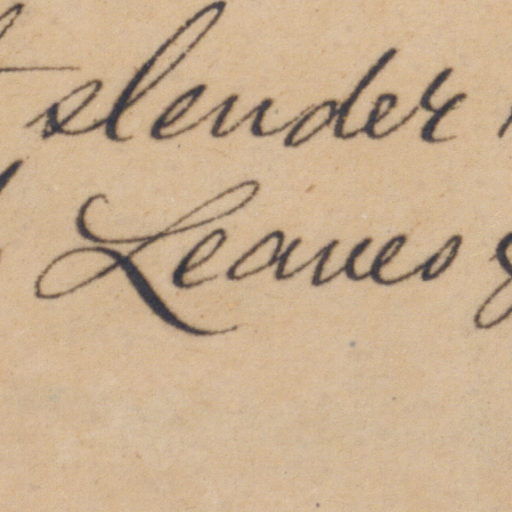 slender
Leaves